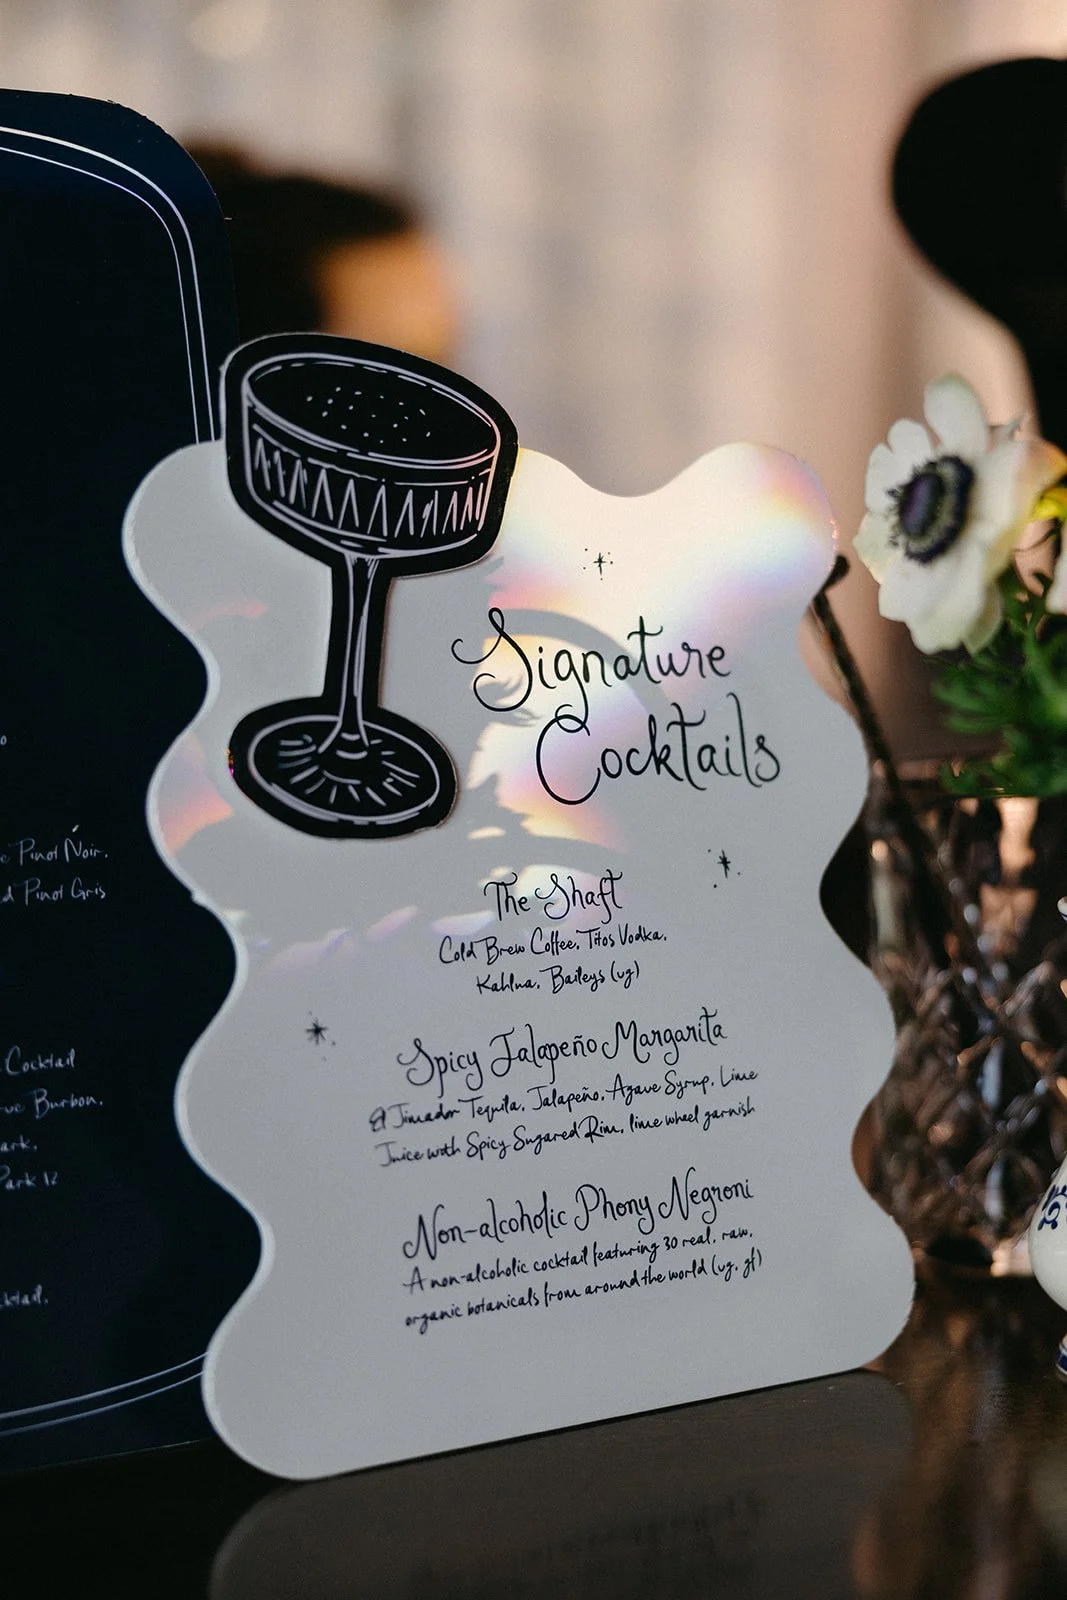 Signature
Cocktails
The Shaft
Cold Brew Coffee, Titos Vodka,
Kahlua, Baileys (vg)
Spicy Jalapeño Margarita
El Jimador Tequila, Jalapeño, Agave Syrup, Lime
Juice with Spicy Sugared Rim, lime wheel garnish
Non-alcoholic Phony Negroni
A non-alcoholic cocktail featuring 30 real, raw,
organic botanicals from around the world (vg, gf)
Pinot Noir,
Pinot Gris
Cocktail
Burbon,
Park 12